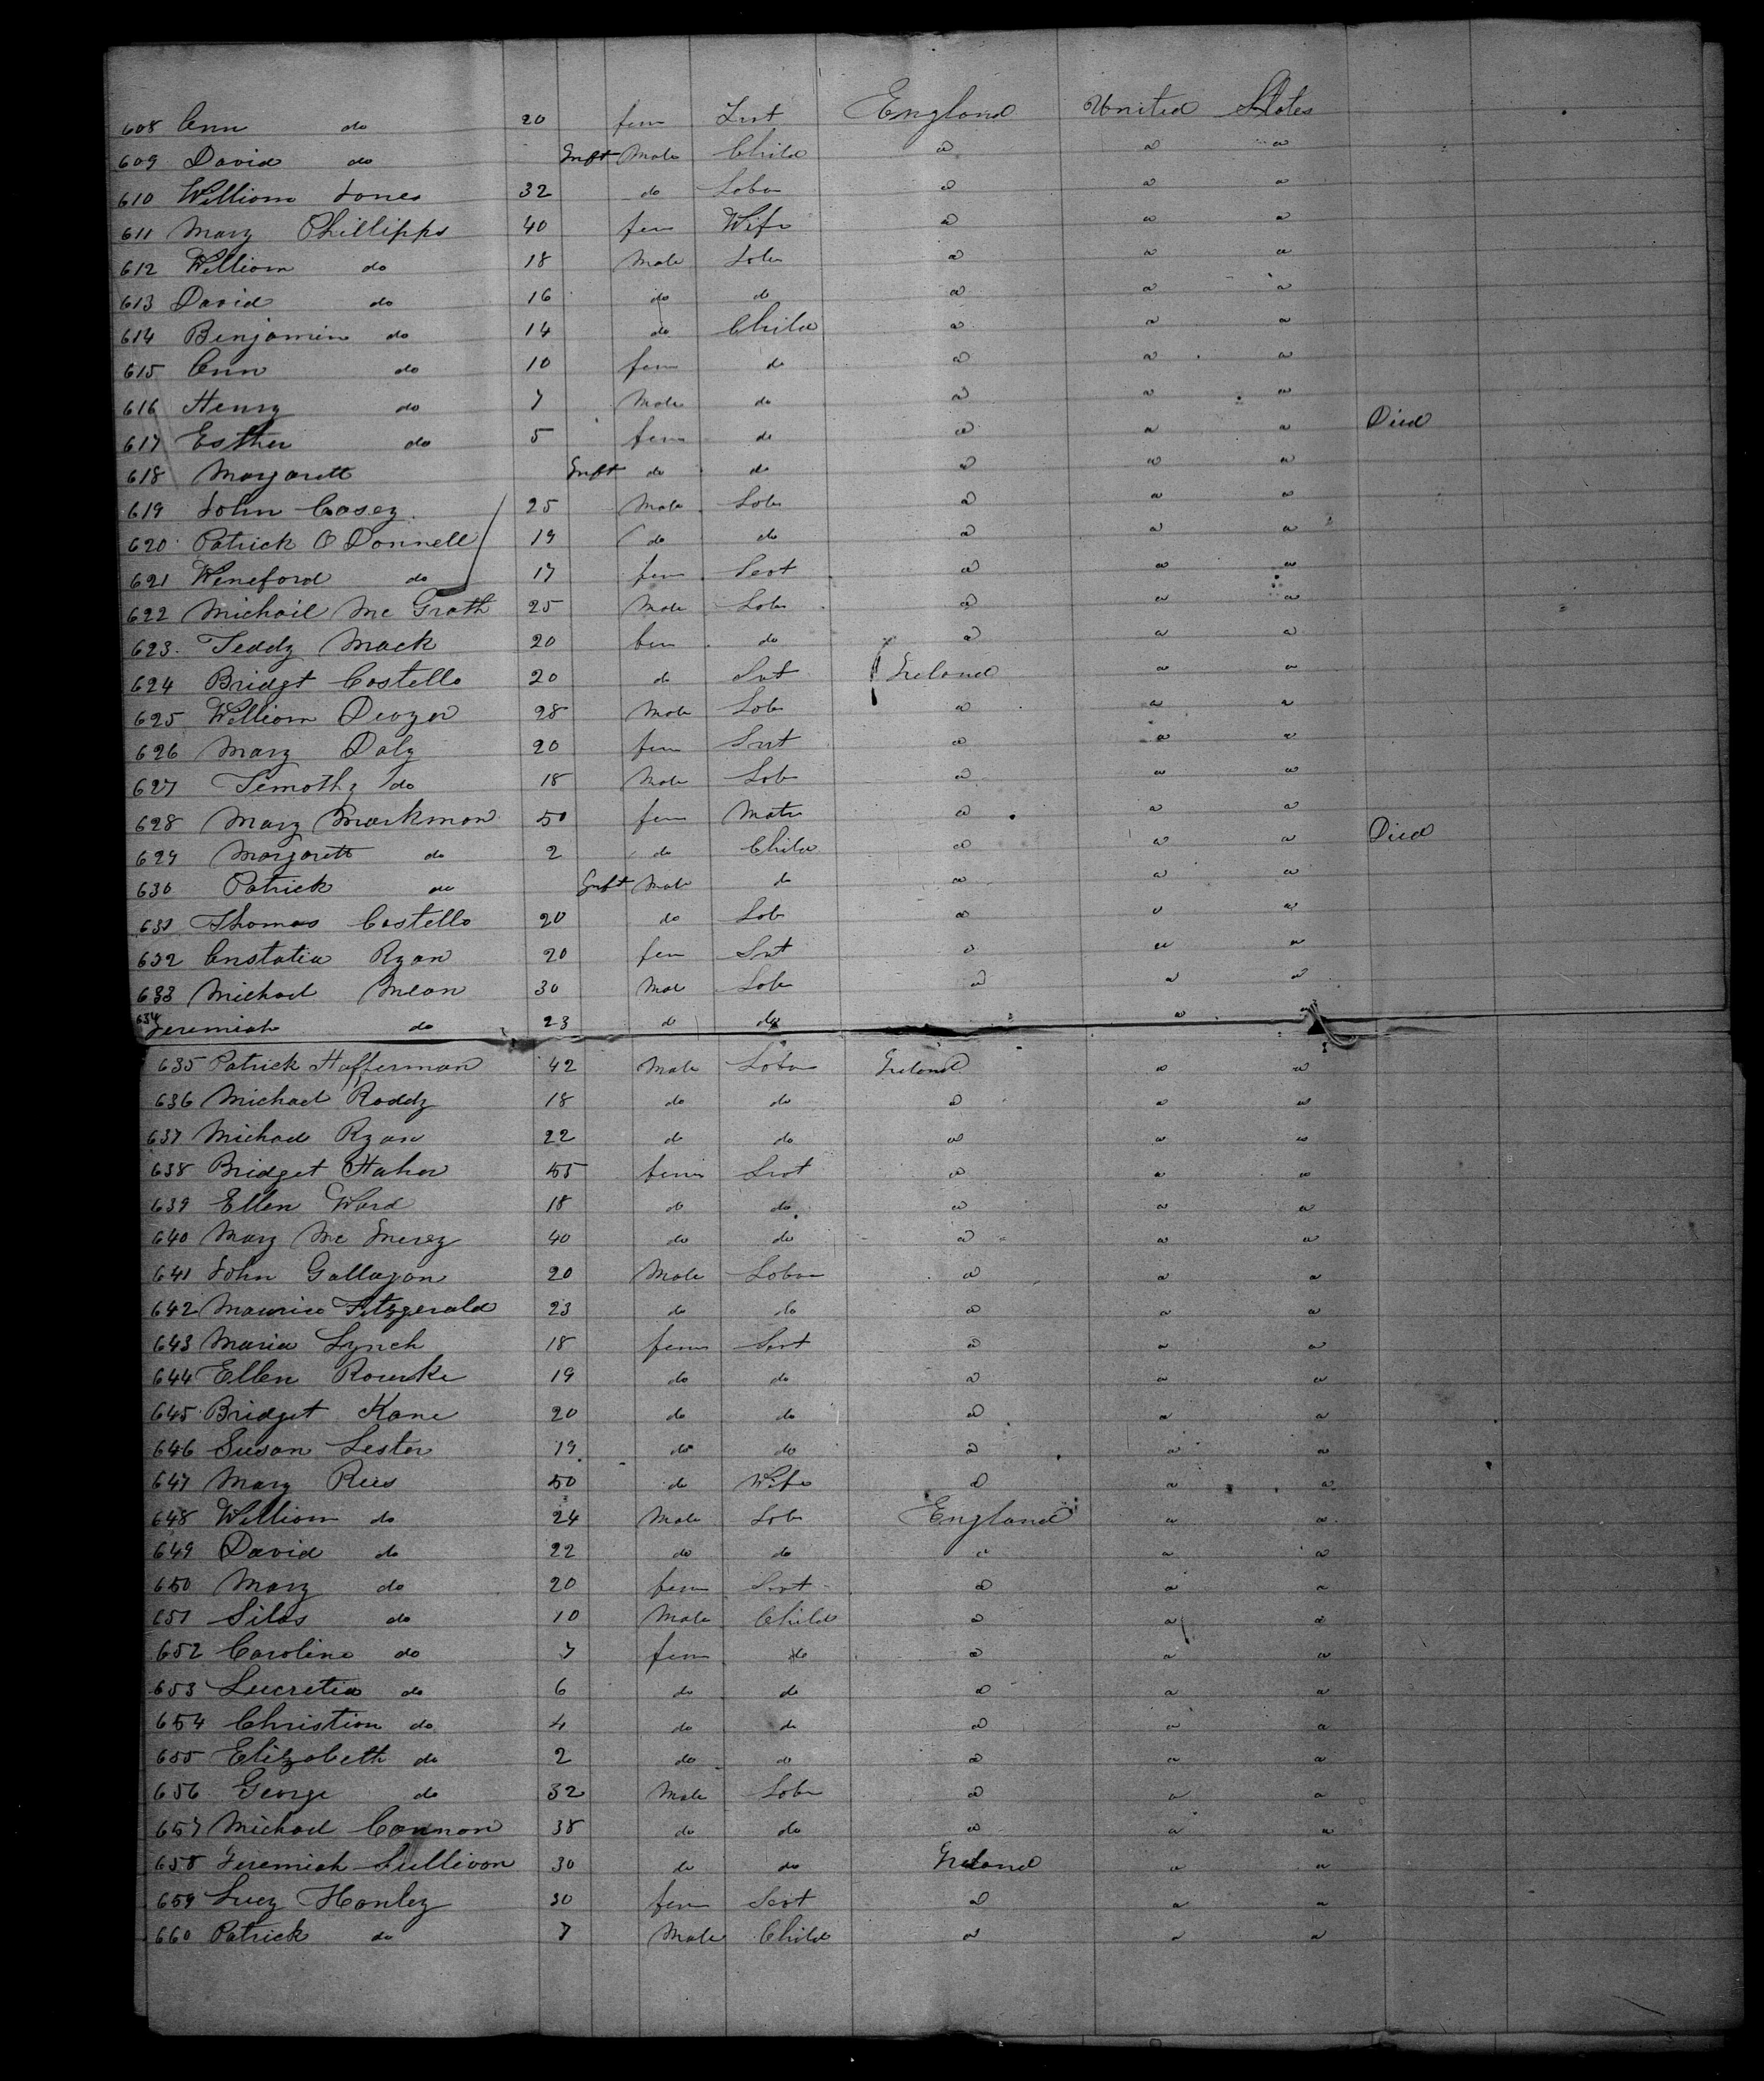 608 Ann do 20 fem Srt England United States
609 David do Inft Male Child " " "
610 William Jones 32 do Labr " " "
611 Mary Phillipps 40 fem Wife " " "
612 William do 18 Male Labr " " "
613 David do 16 do do " " "
614 Benjamin do 14 do Child " " "
615 Ann do 10 fem do " " "
616 Henry do 7 Male do " " "
617 Esther do 5 fem do " " " Died
618 Margarett Inft do do " " "
619 John Casey 25 Male Lab " " "
620 Patrick O Donnell 19 do do " " "
621 Weneford do 17 fem Sert " " "
622 Michail Mc Grath 25 Male Lab " " "
623 Teddy Mack 20 fem do " " "
624 Bridgt Costello 20 do Srt Ireland " "
625 William 28 Male Lab " " "
626 Mary Daly 20 fem Srt " " "
627 Timothy do 18 Male Lab " " "
628 Mary Markman 50 fem Matr " " "
629 Margarett do 2 do Child " " " Died
630 Patrick do Inft Male do " " "
631 Thomas Costello 20 do Lab " " "
632 Anstatia Ryan 20 fem Srt " " "
633 Michael Mean 30 Male Lab " " "
634 Jeremiah do 23 do do " "
635 Patrick Hafferman 42 Male Labr Ireland " "
636 Michael Roddy 18 do do " " "
637 Michael Ryan 22 do do " " "
638 Bridget 55 fem Srt " " "
639 Ellen Ward 18 do do " " "
640 Mary Mc 40 do do " " "
641 John Gallagan 20 Male Labr " " "
642 Maurice Fitzgerald 23 do do " " "
643 Maria Lynch 18 fem Srt " " "
644 Ellen Rourke 19 do do " " "
645 Bridget Kane 20 do do " " "
646 Susan Lester 19 do do " " "
647 Mary Rees 50 do Wife " " "
648 William do 24 Male Lab England " "
649 David do 22 do do " " "
650 Mary do 20 fem Srt " " "
651 Silas do 10 Male Child " " "
652 Caroline do 7 fem do " " "
653 Lucretia do 6 do do " " "
654 Christian do 4 do do " " "
655 Elizabeth do 2 do do " " "
656 George do 32 Male Labr " " "
657 Michael Connon 38 do do " " "
658 Jeremiah Sullivan 30 do do Ireland " "
659 Lucy Hanley 30 fem Sert " " "
660 Patrick do 7 Male Child " " "